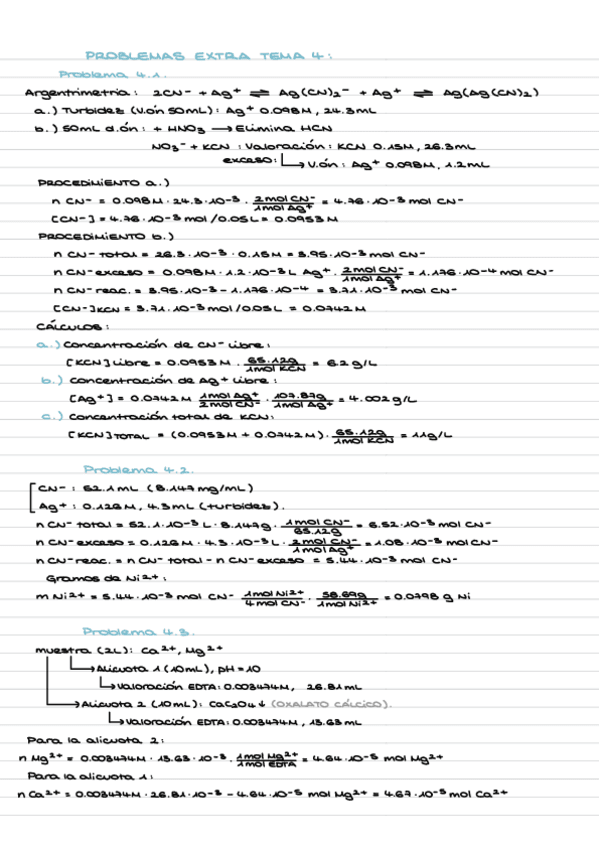 PROBLEMAS EXTRA TEMA 4:
Problema 4.1.
Argentrimetria: 2CN⁻ + Ag⁺ ⇌ Ag(CN)₂⁻ + Ag⁺ ⇌ Ag(Ag(CN)₂)
a.) Turbidez (V.ón 50mL): Ag⁺ 0.098M, 24.3mL
b.) 50mL d.ón: + HNO₃ → Elimina HCN
NO₃⁻ + KCN : Valoración: KCN 0.15M, 26.3mL
exceso: → V.ón: Ag⁺ 0.098M, 1.2mL
PROCEDIMIENTO a.)
n CN⁻ = 0.098M · 24.3 · 10⁻³ · 2mol CN⁻ / 1mol Ag⁺ = 4.76 · 10⁻³ mol CN⁻
[CN⁻] = 4.76 · 10⁻³ mol / 0.05L = 0.0953M
PROCEDIMIENTO b.)
n CN⁻ total = 26.3 · 10⁻³ · 0.15M = 3.95 · 10⁻³ mol CN⁻
n CN⁻ exceso = 0.098M · 1.2 · 10⁻³ L Ag⁺ · 2mol CN⁻ / 1mol Ag⁺ = 1.176 · 10⁻⁴ mol CN⁻
n CN⁻ reac. = 3.95 · 10⁻³ - 1.176 · 10⁻⁴ = 3.71 · 10⁻³ mol CN⁻
[CN⁻]KCN = 3.71 · 10⁻³ mol / 0.05L = 0.0742M
CÁLCULOS:
a.) Concentración de CN⁻ libre:
[KCN]Libre = 0.0953M · 65.12g / 1mol KCN = 6.2 g/L
b.) Concentración de Ag⁺ libre:
[Ag⁺] = 0.0742M 1mol Ag⁺ / 2mol CN⁻ · 107.87g / 1mol Ag⁺ = 4.002 g/L
c.) Concentración total de KCN:
[KCN]TOTAL = (0.0953M + 0.0742M) · 65.12g / 1mol KCN = 11g/L
Problema 4.2.
CN⁻ : 52.1mL (8.147mg/mL)
Ag⁺ : 0.126M, 4.3mL (turbidez).
n CN⁻ total = 52.1 · 10⁻³ L · 8.147g · 1mol CN⁻ / 65.12g = 6.52 · 10⁻³ mol CN⁻
n CN⁻ exceso = 0.126M · 4.3 · 10⁻³ L · 2mol CN⁻ / 1mol Ag⁺ = 1.08 · 10⁻³ mol CN⁻
n CN⁻ reac. = n CN⁻ total - n CN⁻ exceso = 5.44 · 10⁻³ mol CN⁻
Gramos de Ni²⁺:
m Ni²⁺ = 5.44 · 10⁻³ mol CN⁻ 1mol Ni²⁺ / 4mol CN⁻ · 58.69g / 1mol Ni²⁺ = 0.0798 g Ni
Problema 4.3.
muestra (2L): Ca²⁺, Mg²⁺
→ Alicuota 1 (10mL), pH = 10
→ Valoración EDTA: 0.003474M, 26.81mL
→ Alicuota 2 (10mL): CaC₂O₄↓ (OXALATO CÁLCICO).
→ Valoración EDTA: 0.003474M, 13.63mL
Para la alicuota 2:
n Mg²⁺ = 0.003474M · 13.63 · 10⁻³ · 1mol Mg²⁺ / 1mol EDTA = 4.64 · 10⁻⁵ mol Mg²⁺
Para la alicuota 1:
n Ca²⁺ = 0.003474M · 26.81 · 10⁻³ - 4.64 · 10⁻⁵ mol Mg²⁺ = 4.67 · 10⁻⁵ mol Ca²⁺